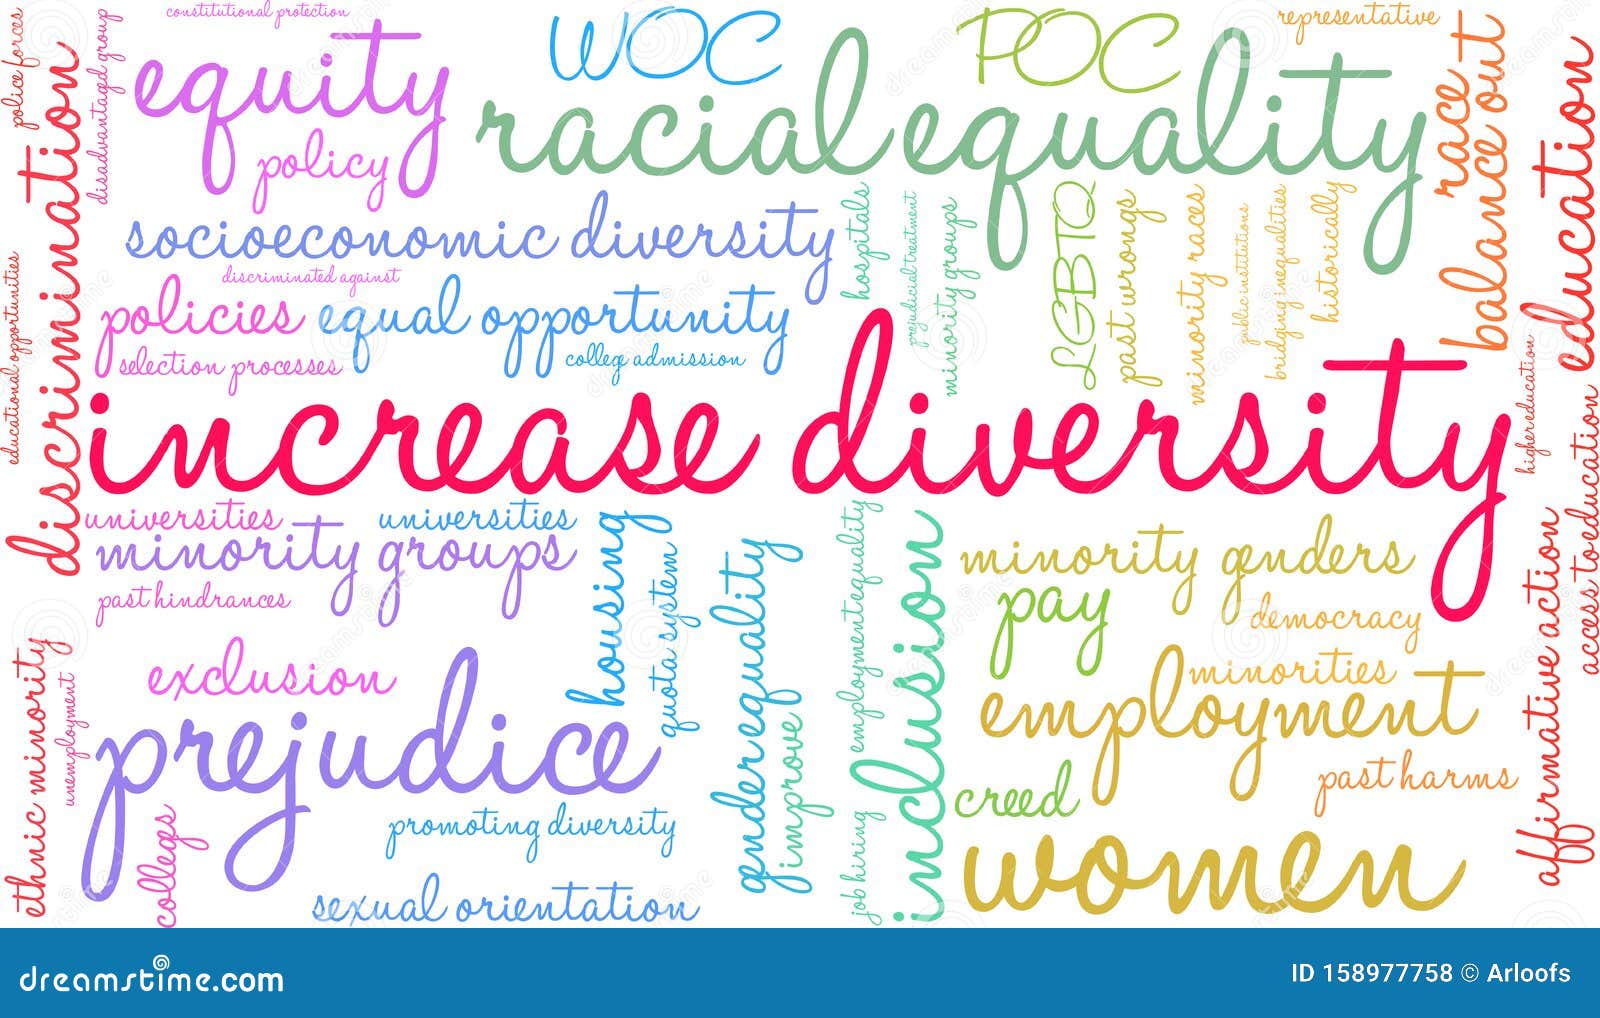 constitutional protection
WOC
POC
representative
police forces
disadvantagd group
discrimination
equity
policy
racial equality
race
balance out
education
socioeconomic diversity
discriminated against
policies
equal opportunity
selection processes
colleg admission
hospitals
prejudicial treatment
minority groups
LGBTQ
past wrongs
minority races
public institutions
bridging inequalities
historically
educational opportunities
increase diversity
higher education
access to education
universities
universities
minority groups
past hindrances
housing
quota system
gender equality
improve
employment equality
inclusion
minority genders
pay
democracy
affirmative action
ethnic minority
unemployment
exclusion
prejudice
minorities
employment
past harms
creed
collegs
promoting diversity
job hiring
women
sexual orientation
dreamstime.com
ID 158977758 © Arloofs